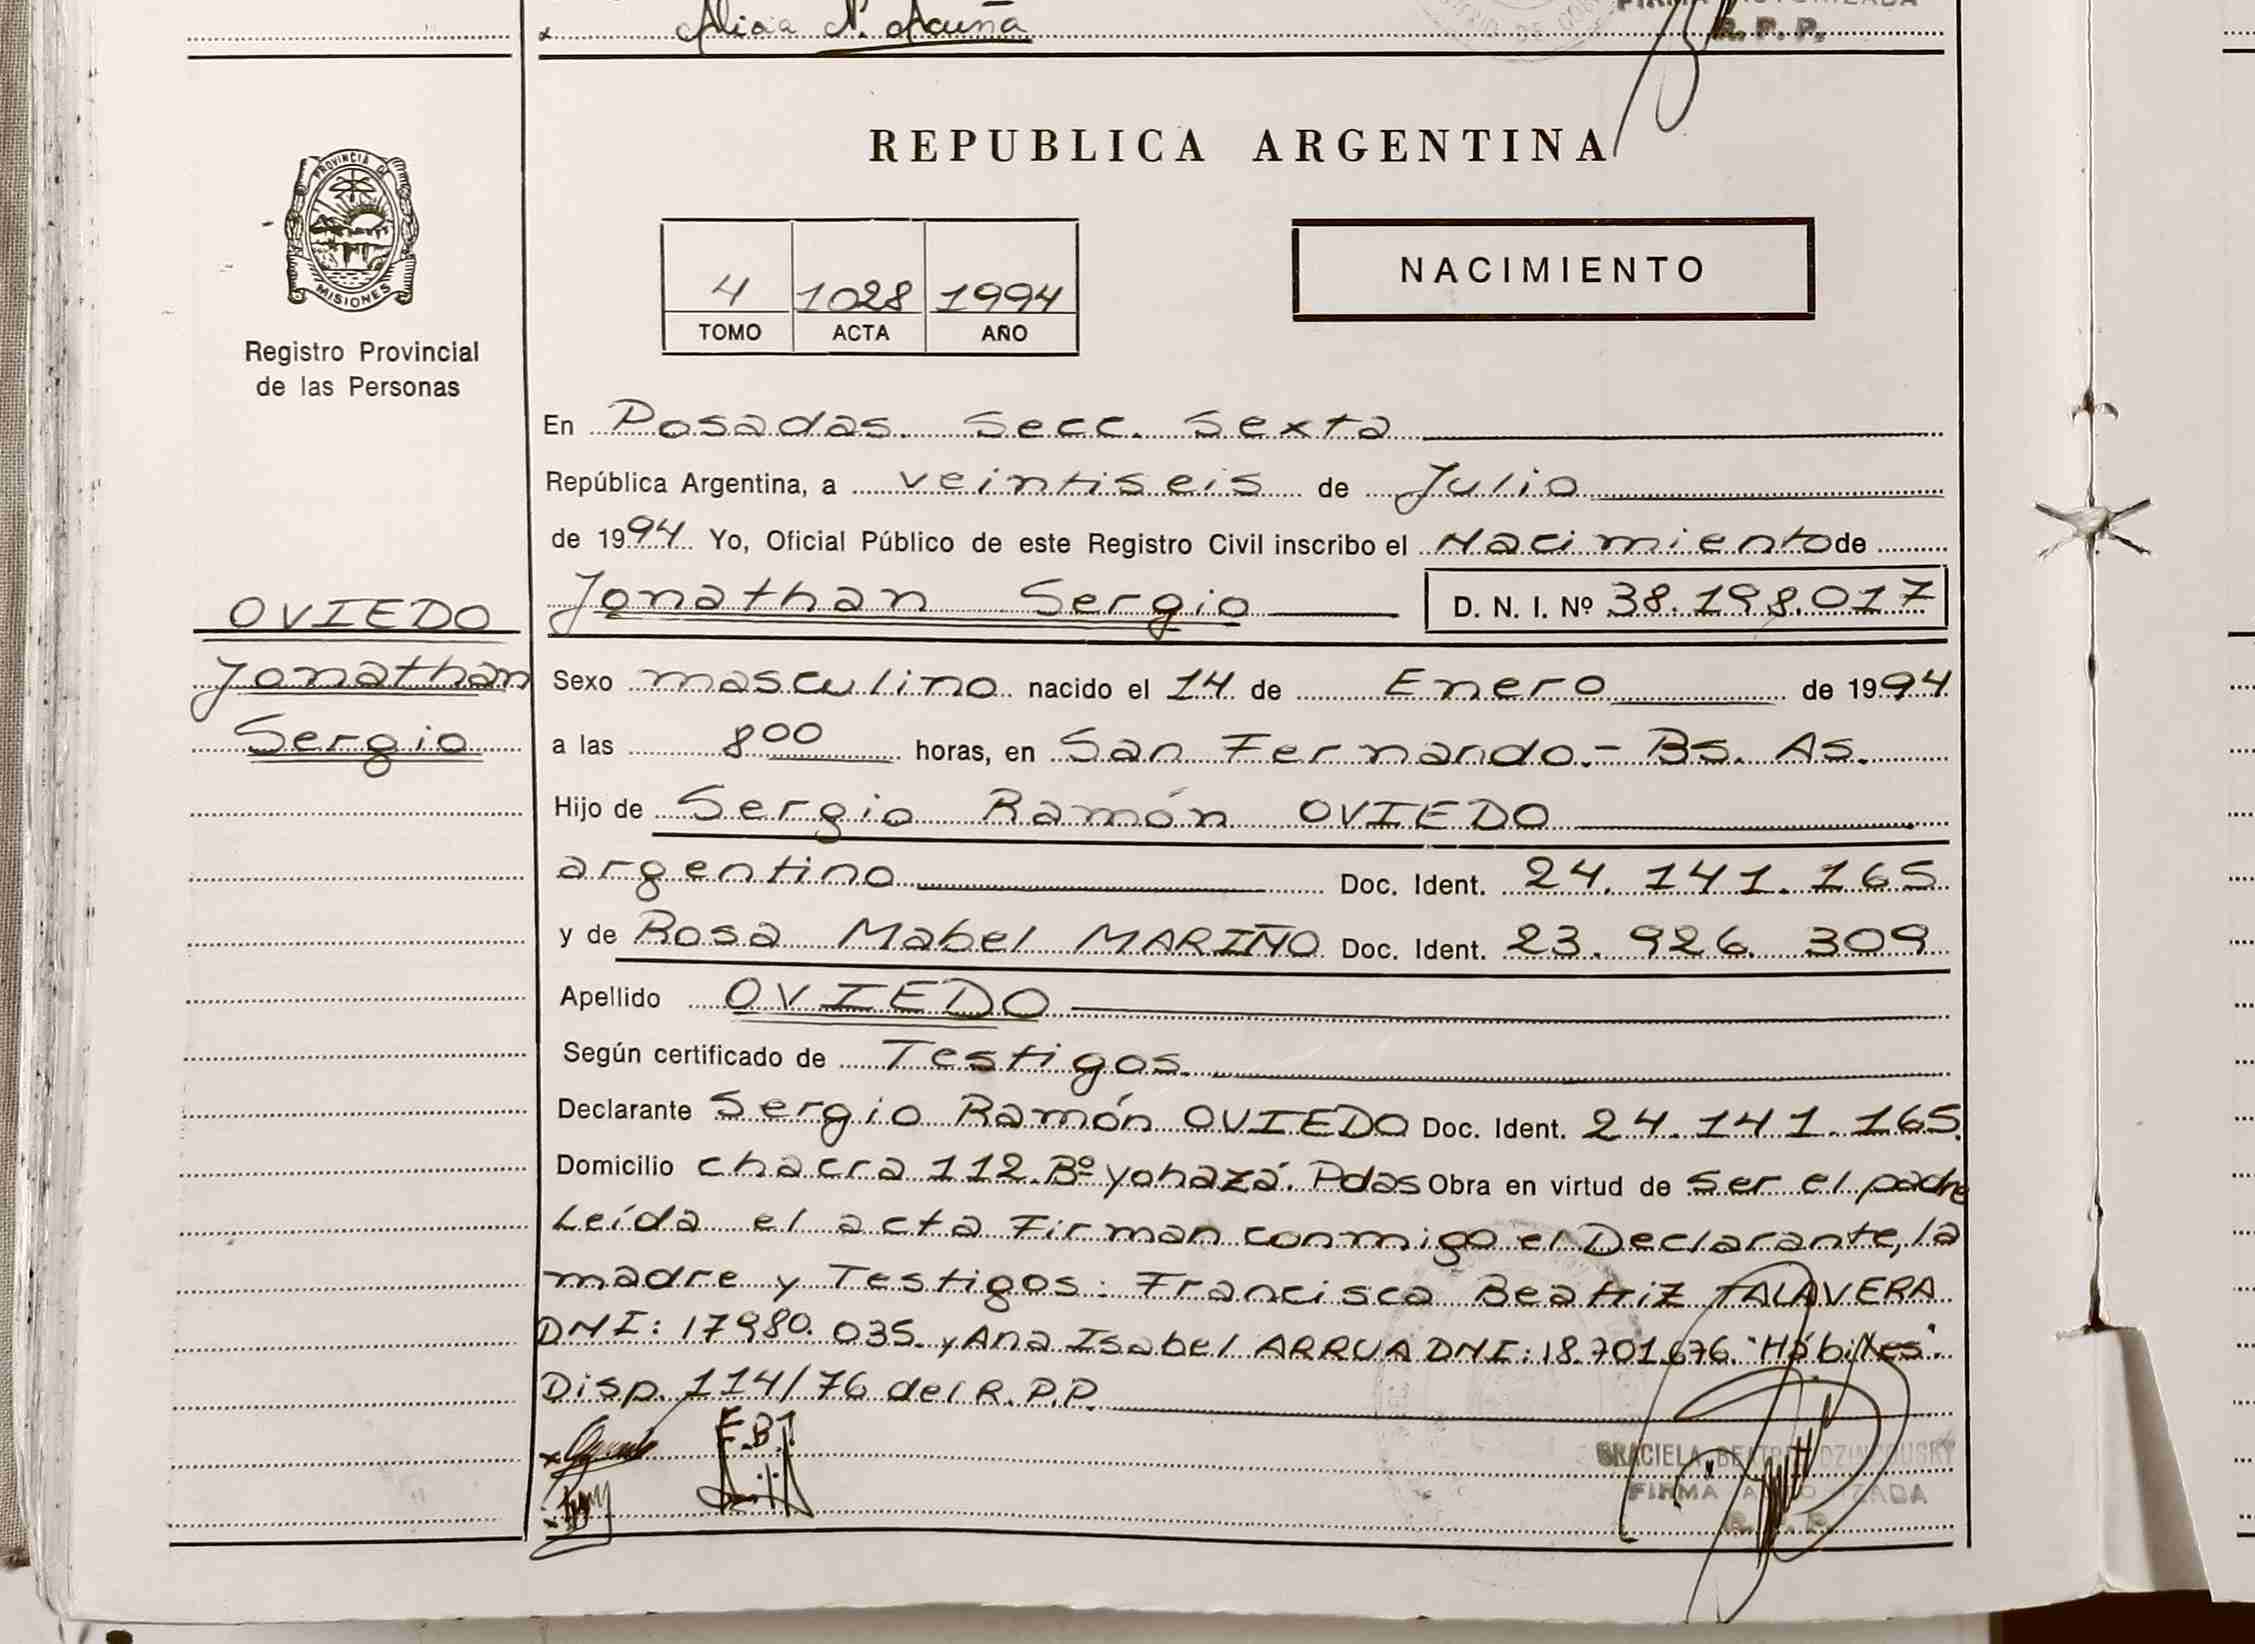 Alicia N. Acuña
FIRMA AUTORIZADA
R. P. P.
REPUBLICA ARGENTINA
PROVINCIA DE
MISIONES
Registro Provincial
de las Personas
4 1028 1994
TOMO ACTA AÑO
NACIMIENTO
En Posadas. Secc. Sexta
República Argentina, a veintiseis de Julio
de 1994 Yo, Oficial Público de este Registro Civil inscribo el Nacimiento de
Jonathan Sergio D. N. I. Nº 38.198.017
OVIEDO
Jonathan
Sergio
Sexo masculino nacido el 14 de Enero de 1994
a las 8 00 horas, en San Fernando.- Bs. As.
Hijo de Sergio Ramón OVIEDO
argentino Doc. Ident. 24.141.165
y de Rosa Mabel MARIÑO Doc. Ident. 23.926.309
Apellido OVIEDO
Según certificado de Testigos.
Declarante Sergio Ramón OVIEDO Doc. Ident. 24.141.165.
Domicilio chacra 112.Bº Yohazá. Pdas Obra en virtud de ser el padre
Leída el acta Firman conmigo el Declarante, la
madre y Testigos: Francisca Beatriz TALAVERA
DNI: 17980.035. y Ana Isabel ARRUA DNI: 18.701.676. "Hábiles".
Disp. 114/76 del R.P.P.
F.B.T.
GRACIELA
FIRMA AUTORIZADA
R. P. P.